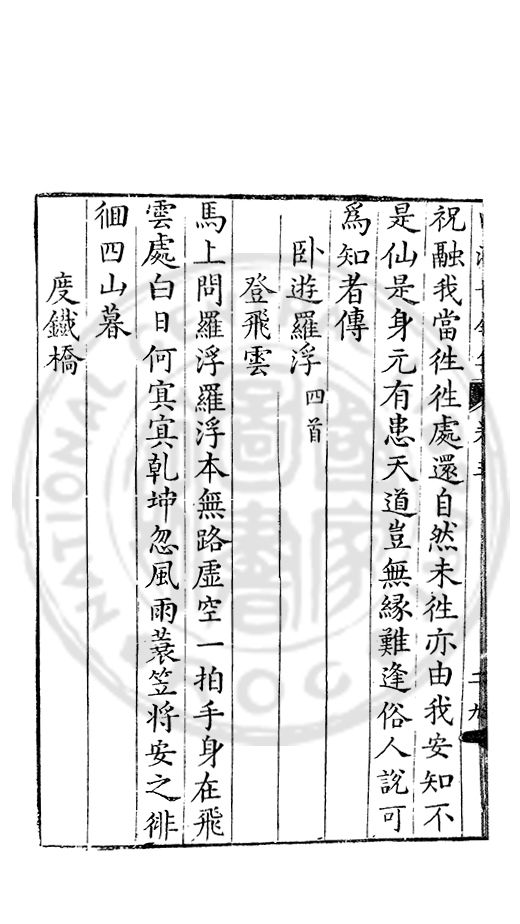 祝融我當徃徃處還自然未徃亦由我安知不
是仙是身元有患天道豈無緣難逢俗人說可
爲知者傳
卧遊羅浮四首
登飛雲
馬上問羅浮羅浮本無路虛空一拍手身在飛
雲處白日何㝠㝠乾坤忽風雨蓑笠將安之徘
徊四山暮
度鐵橋